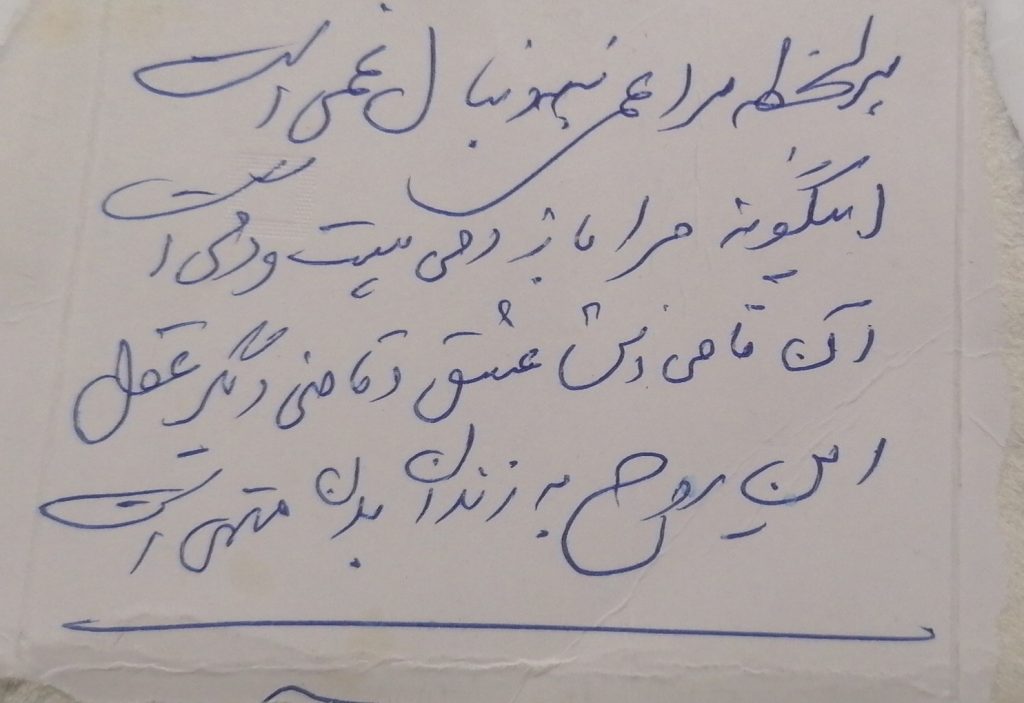 هر لحظه مرا غمی به دنبال غمی است
اینگونه مرا باز دمی نیست و دمی است
آن قاضی عشق و قاضی دگر عقل
این روح به زندان بدن متهم است